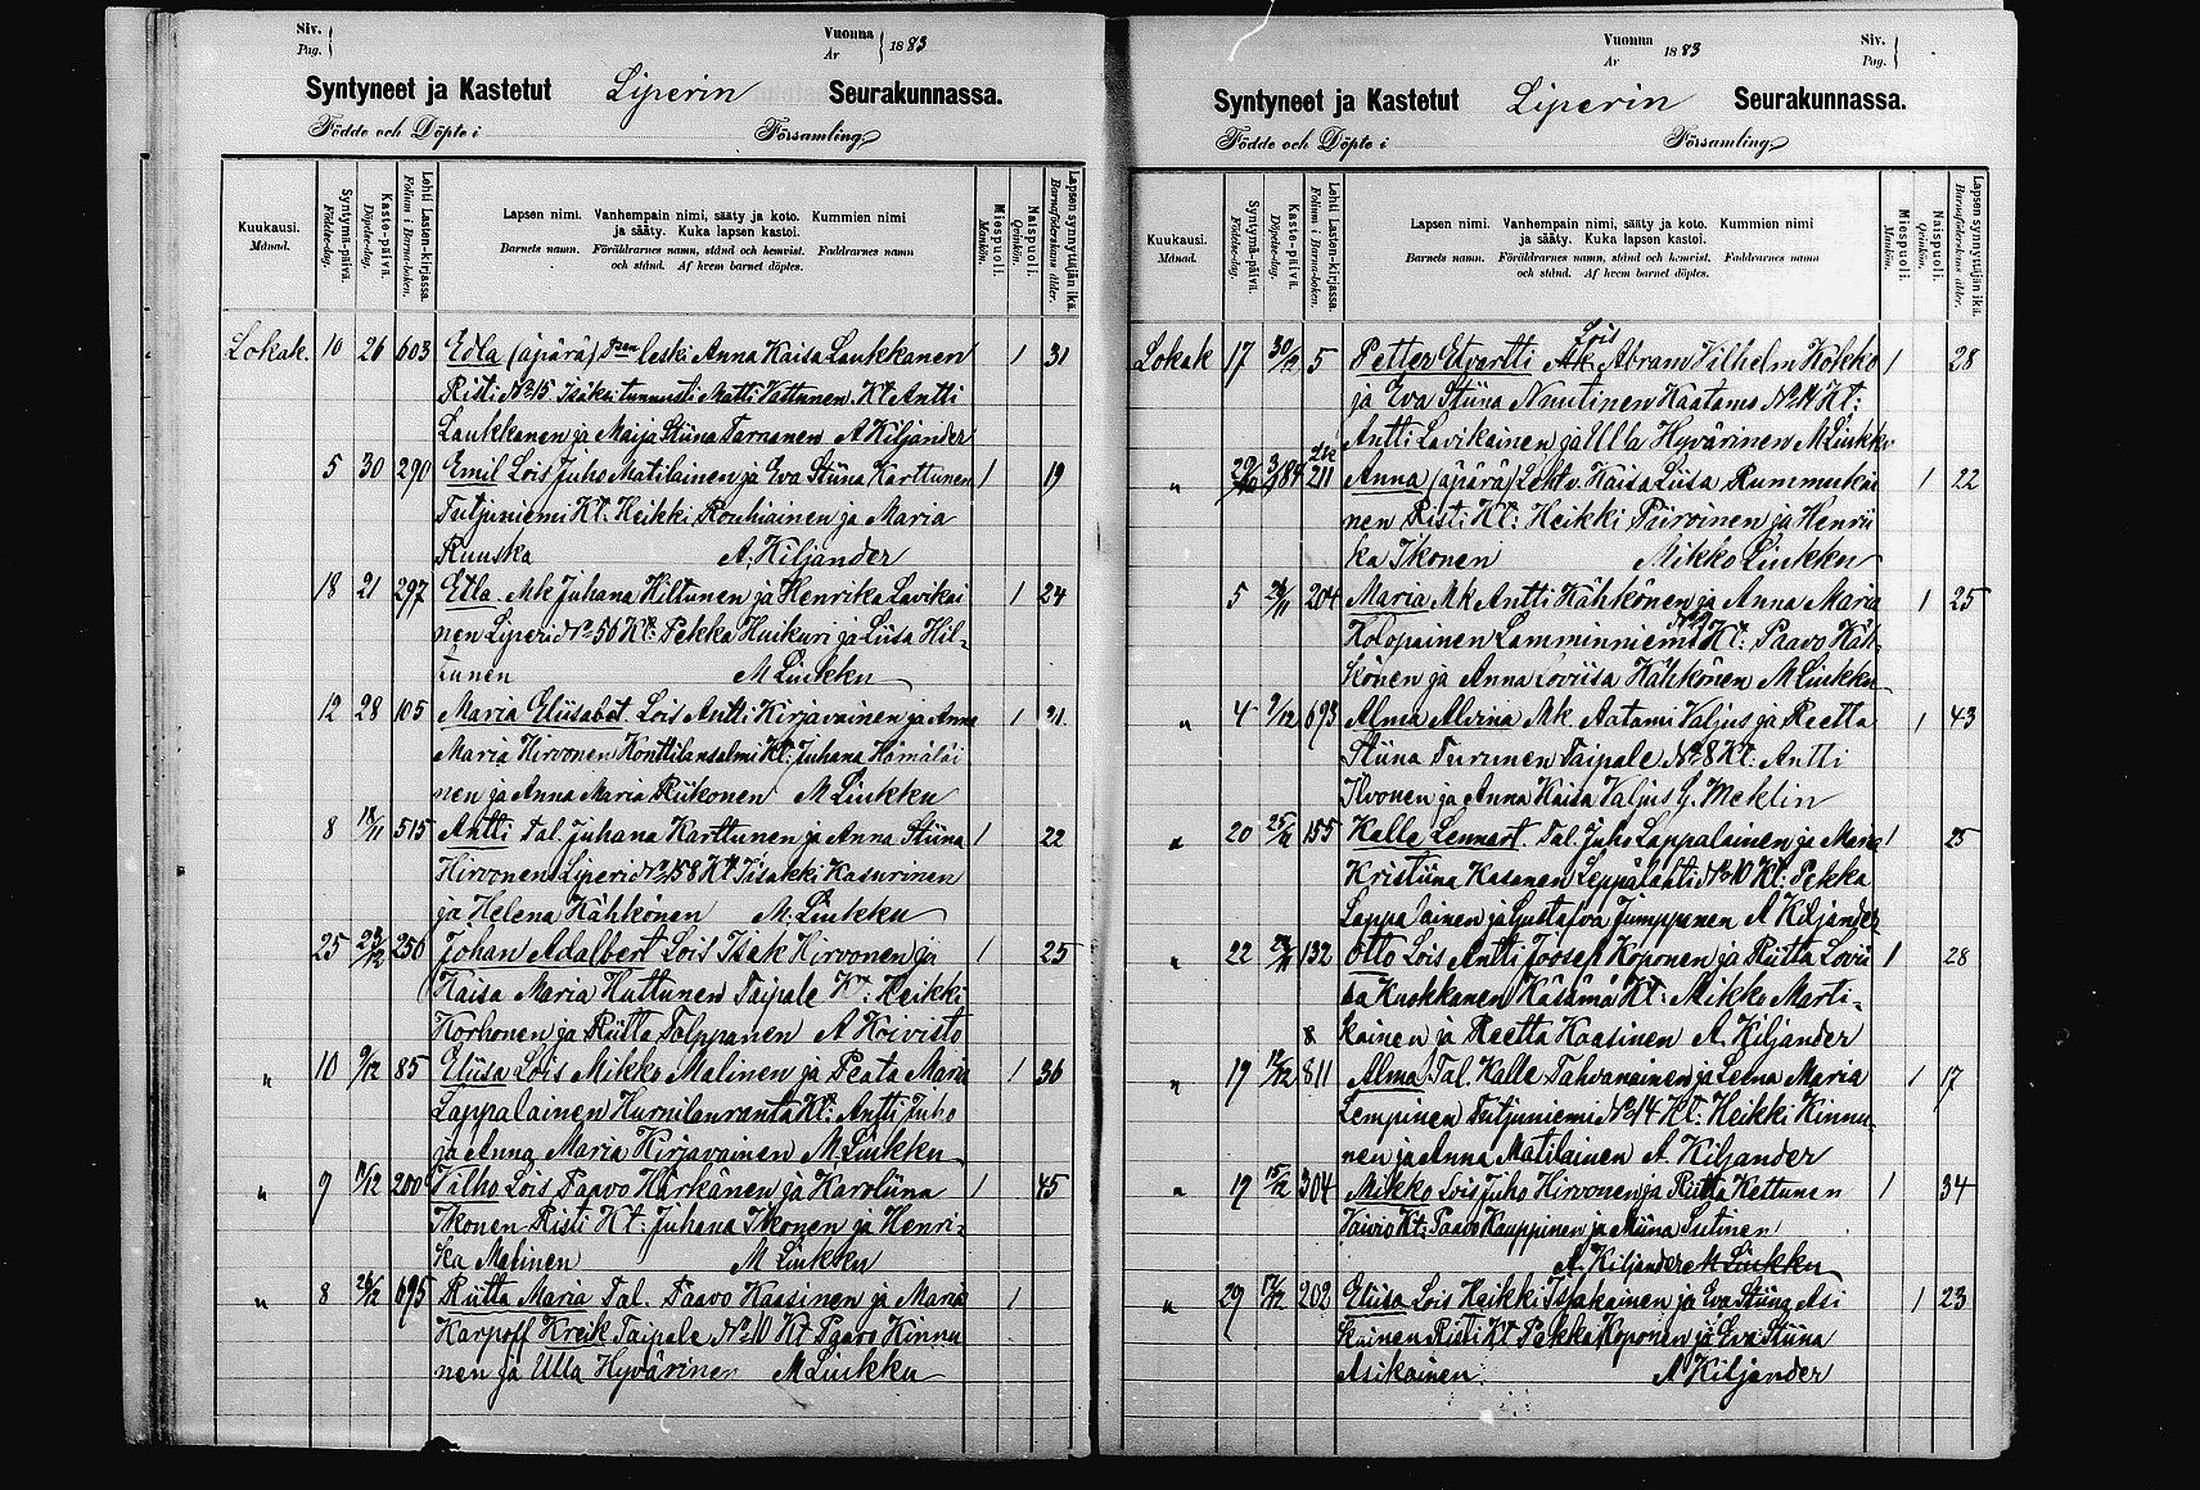 Siv.
Pag.
Vuonna
År
1883
Syntyneet ja Kastetut Liperin Seurakunnassa.
Födde och Döpte i Församling
Kuukausi.
Månad.
Syntymä-päivä.
Födelse-dag.
Kaste-päivä.
Döpelse-dag.
Lehti Lasten-kirjassa.
Folium i Barna-boken.
Lapsen nimi. Vanhempain nimi, sääty ja koto. Kummien nimi
ja sääty. Kuka lapsen kastoi.
Barnets namn. Föräldrarnes namn, stånd och hemvist. Faddrarnes namn
och stånd. Af hvem barnet döptes.
Miespuoli.
Mankön.
Naispuoli.
Qvinkön.
Lapsen synnyttäjän ikä.
Barnaföderskans ålder.
Lokak. 10 26 603 Edla (äpärä) leski Anna Kaisa Laukkanen 1 31
Risti No 15. Isäksi tunnusti Matti Vattunen. Kt Antti
Laukkanen ja Maija Stiina Tarnanen A Kiljander
5 30 290 Emil Lois Juho Matilainen ja Eva Stiina Karttunen 1 19
Tutjuniemi Kt: Heikki Rouhiainen ja Maria
Ruuska A. Kiljander
18 21 297 Etla. Mk Juhana Hiltunen ja Henrika Lavikai 1 24
nen Liperi No 56 Kt: Pekka Huikuri ja Liisa Hil-
tunen M Liukku
12 28 105 Maria Eliisabet. Lois Antti Kirjavainen ja Anna 1 21.
Maria Hirvonen Konttilansalmi Kt: Juhana Hämäläi
nen ja Anna Maria Riikonen M Liukku
8 18/11 515 Antti Tal. Juhana Karttunen ja Anna Stiina 1 22
Hirvonen Liperi No 158 Kt Iisakki Kasurinen
ja Helena Kähkönen M. Liukku
25 23/12 256 Johan Adalbert Lois Isak Hirvonen ja 1 25
Kaisa Maria Huttunen Taipale Kt: Heikki
Korhonen ja Riitta Tolppanen A Koivisto
" 10 9/12 85 Eliisa Lois Mikko Malinen ja Peata Maria 1 36
Lappalainen Hurnilanranta Kt: Antti Juho
ja Anna Maria Kirjavainen M Liukku
" 9 11/12 200 Vilho Lois Paavo Härkänen ja Karoliina 1 45
Ikonen Risti Kt: Juhana Ikonen ja Henri-
ka Malinen M Liukku
" 8 26/12 695 Riitta Maria Tal. Paavo Kaasinen ja Maria 1
Karpoff Kreik Taipale No 10 Kt Paavo Kinnu
nen ja Ulla Hyvärinen M Liukku
Vuonna
År
1883
Siv.
Pag.
Syntyneet ja Kastetut Liperin Seurakunnassa.
Födde och Döpte i Församling
Kuukausi.
Månad.
Syntymä-päivä.
Födelse-dag.
Kaste-päivä.
Döpelse-dag.
Lehti Lasten-kirjassa.
Folium i Barna-boken.
Lapsen nimi. Vanhempain nimi, sääty ja koto. Kummien nimi
ja sääty. Kuka lapsen kastoi.
Barnets namn. Föräldrarnes namn, stånd och hemvist. Faddrarnes namn
och stånd. Af hvem barnet döptes.
Miespuoli.
Mankön.
Naispuoli.
Qvinkön.
Lapsen synnyttäjän ikä.
Barnaföderskans ålder.
Lois
Lokak 17 30/12 5 Petter Etvartti Mk Abram Vilhelm Kokko 1 28
ja Eva Stiina Nuutinen Kaatamo No 14 Kt:
Antti Lavikainen ja Ulla Hyvärinen M Liukku
" 211 Anna (äpärä) Leht v. Kaisa Liisa Rummukai 1 22
nen Risti Kt: Heikki Piiroinen ja Henrii
ka Ikonen Mikko Liukku
5 204 Maria Mk Antti Kähkönen ja Anna Maria 1 25
Kolopainen Lamminniemi Kt: Paavo Käh-
könen ja Anna Loviisa Kähkönen M Liukku
" 4 9/12 693 Alma Alvina Mk. Aatami Valjus ja Reetta 1 43
Stiina Turunen Taipale No 8 Kt: Antti
Ilvonen ja Anna Kaisa Valjus G. Meklin
" 20 155 Kalle Lennart. Tal. Juho Lappalainen ja Maria 1 25
Kristiina Kasanen Leppälahti No 10 Kt: Pekka
Lappalainen ja Gustafva Jumppanen A Kiljander
" 22 132 Otto Lois Antti Joosep Koponen ja Riitta Lovii 1 28
sa Kuokkanen Käsämä Kt: Mikko Marti-
kainen ja Reetta Kaasinen A. Kiljander
" 19 12/12 811 Alma Tal. Kalle Tahvanainen ja Leena Maria 1 17
Lempinen Tutjuniemi No 14 Kt: Heikki Kinnu-
nen ja Anna Matilainen A. Kiljander
" 19 15/12 304 Mikko Lois Juho Hirvonen ja Riitta Kettunen 1 34
Vaivio Kt: Paavo Kauppinen ja Miina Sutinen
A. Kiljander M Liukku
" 29 17/12 202 Eliisa Lois Heikki Issakainen ja Eva Stiina Asi 1 23
kainen Risti Kt Pekka Koponen ja Eva Stiina
Asikainen A Kiljander